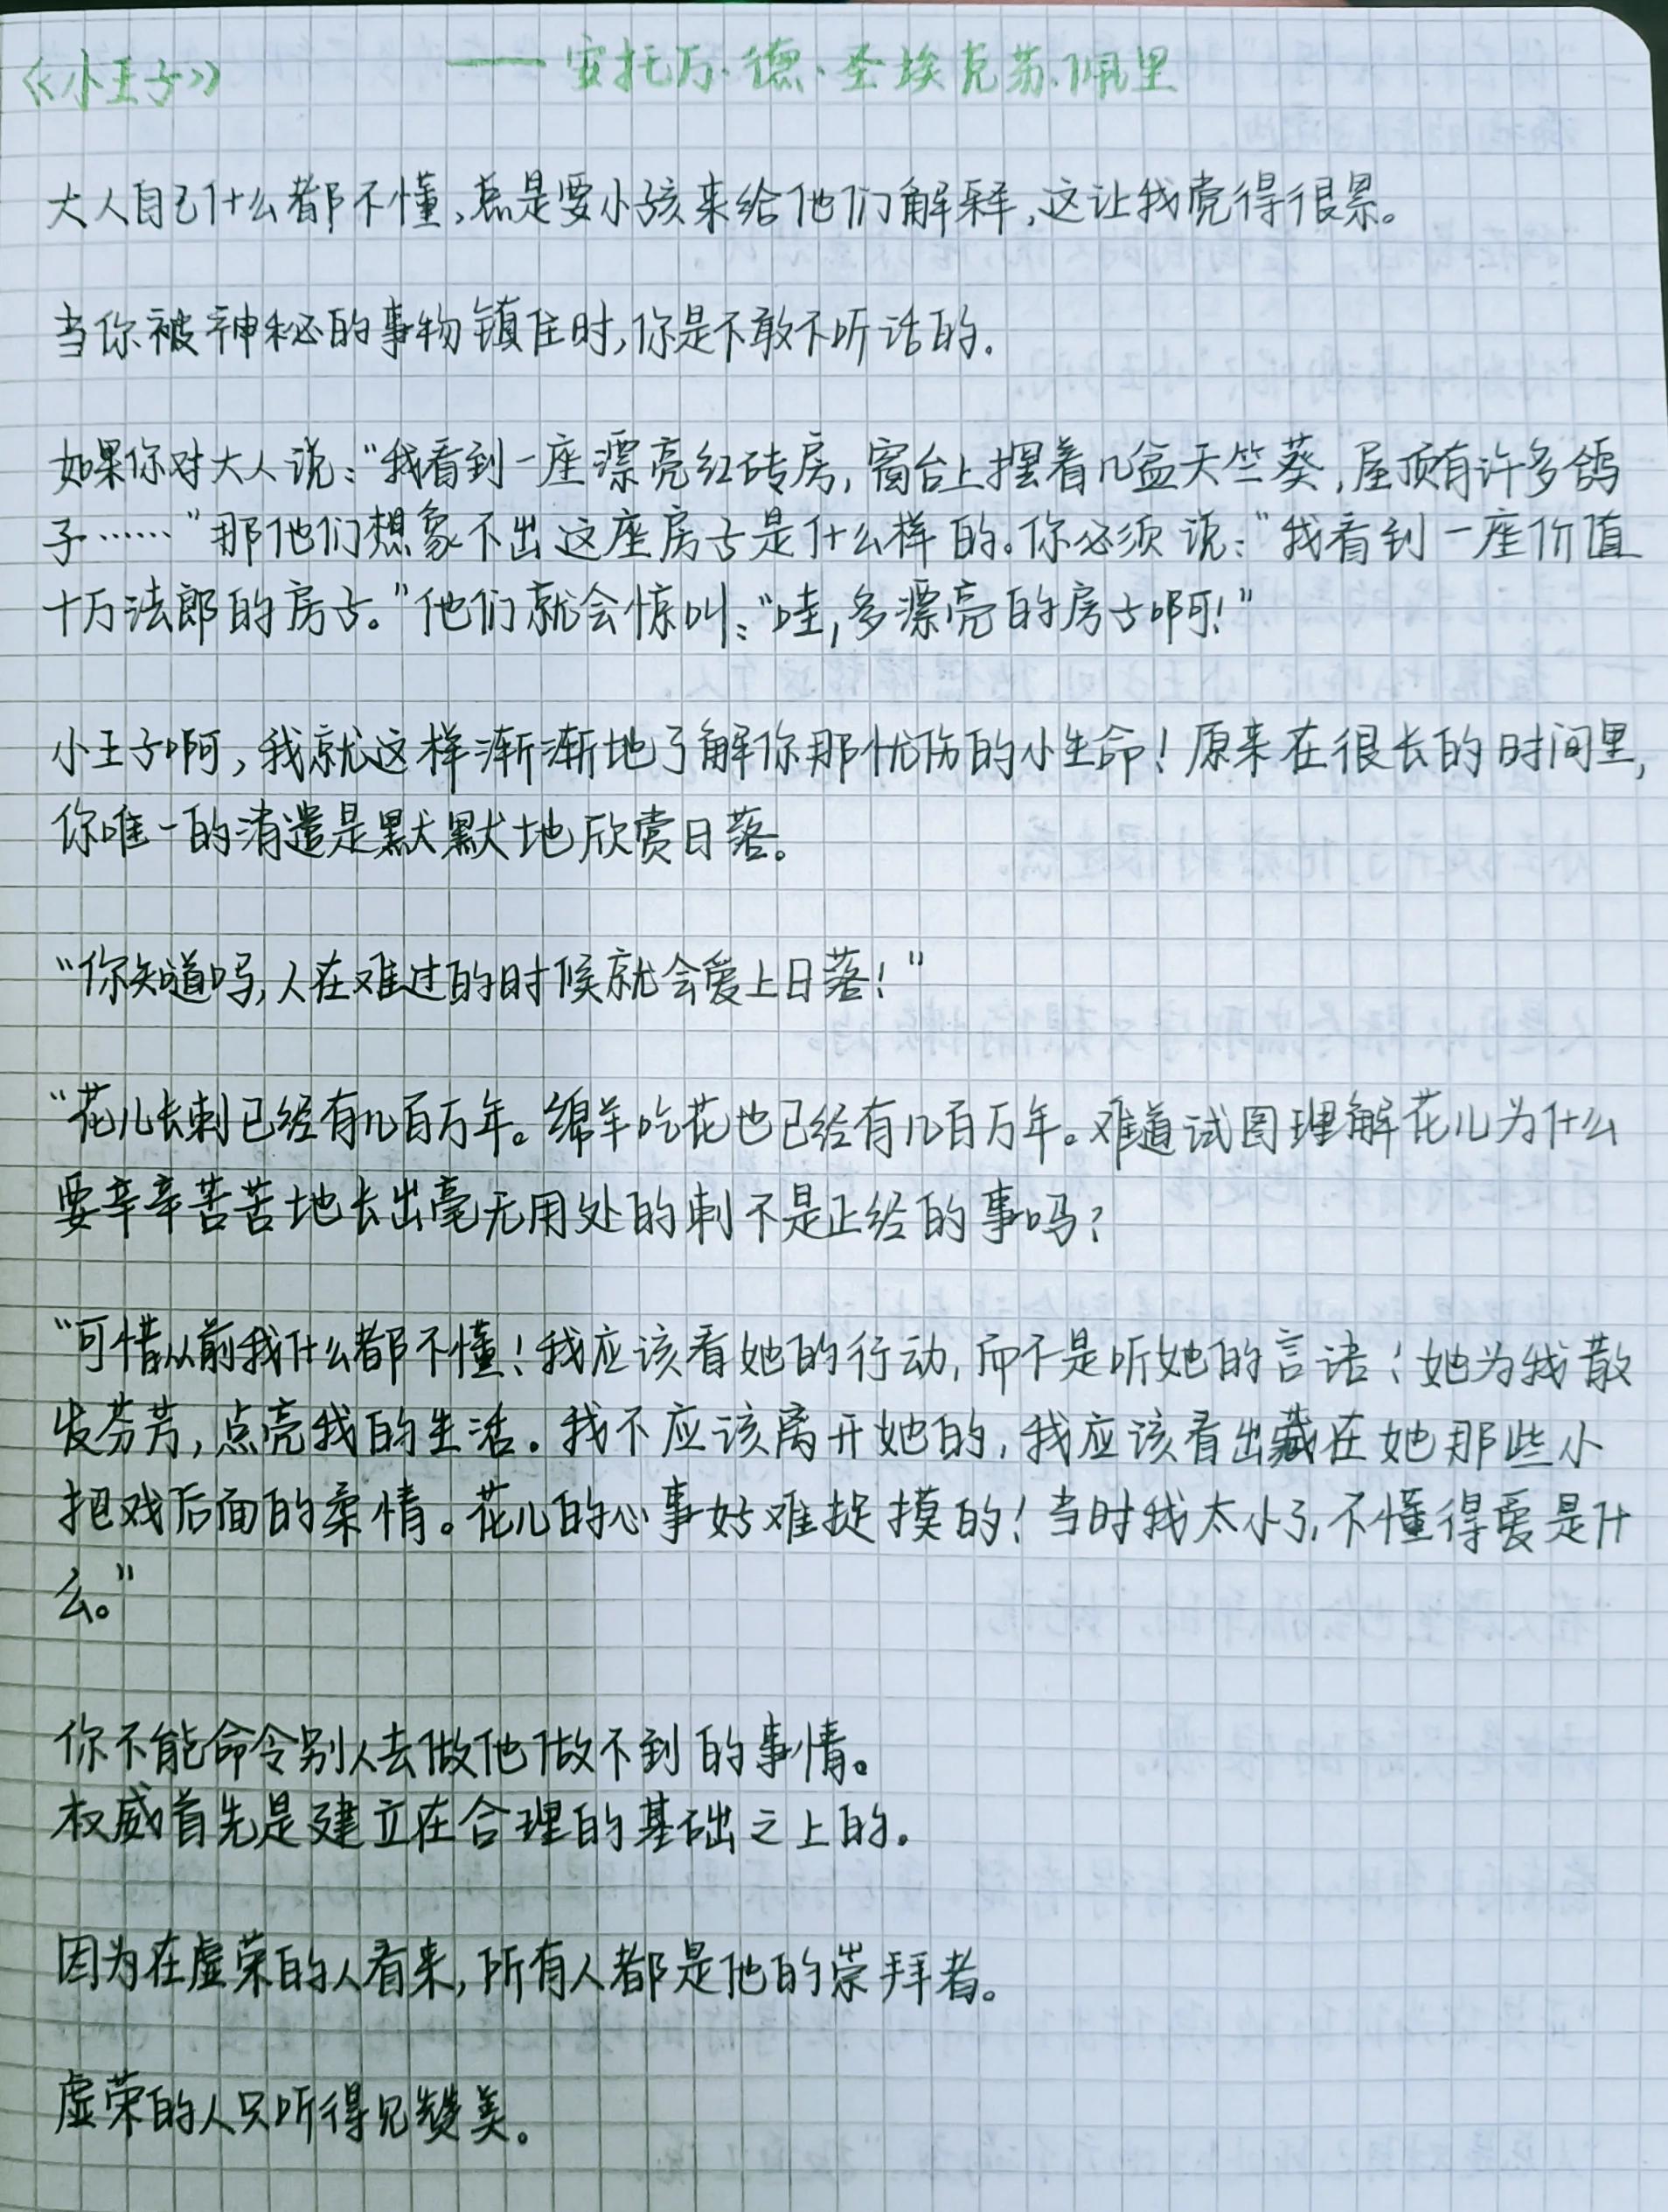 《小王子》 ——安托万·德·圣埃克苏佩里
大人自己什么都不懂,总是要小孩来给他们解释,这让我觉得很累。
当你被神秘的事物镇住时,你是不敢不听话的.
如果你对大人说:“我看到一座漂亮红砖房,窗台上摆着几盆天竺葵,屋顶有许多鸽
子……”那他们想象不出这座房子是什么样的。你必须说:“我看到一座价值
十万法郎的房子。”他们就会惊叫:“哇,多漂亮的房子啊!”
小王子啊,我就这样渐渐地了解你那忧伤的小生命!原来在很长的时间里,
你唯一的消遣是默默地欣赏日落。
“你知道吗,人在难过的时候就会爱上日落!”
“花儿长刺已经有几百万年。绵羊吃花也已经有几百万年。难道试图理解花儿为什么
要辛辛苦苦地长出毫无用处的刺不是正经的事吗?
“可惜从前我什么都不懂!我应该看她的行动,而不是听她的言语!她为我散
发芬芳,点亮我的生活。我不应该离开她的,我应该看出藏在她那些小
把戏后面的柔情。花儿的心事好难捉摸的!当时我太小了,不懂得爱是什
么。”
你不能命令别人去做他做不到的事情。
权威首先是建立在合理的基础之上的.
因为在虚荣的人看来,所有人都是他的崇拜者。
虚荣的人只听得见赞美。